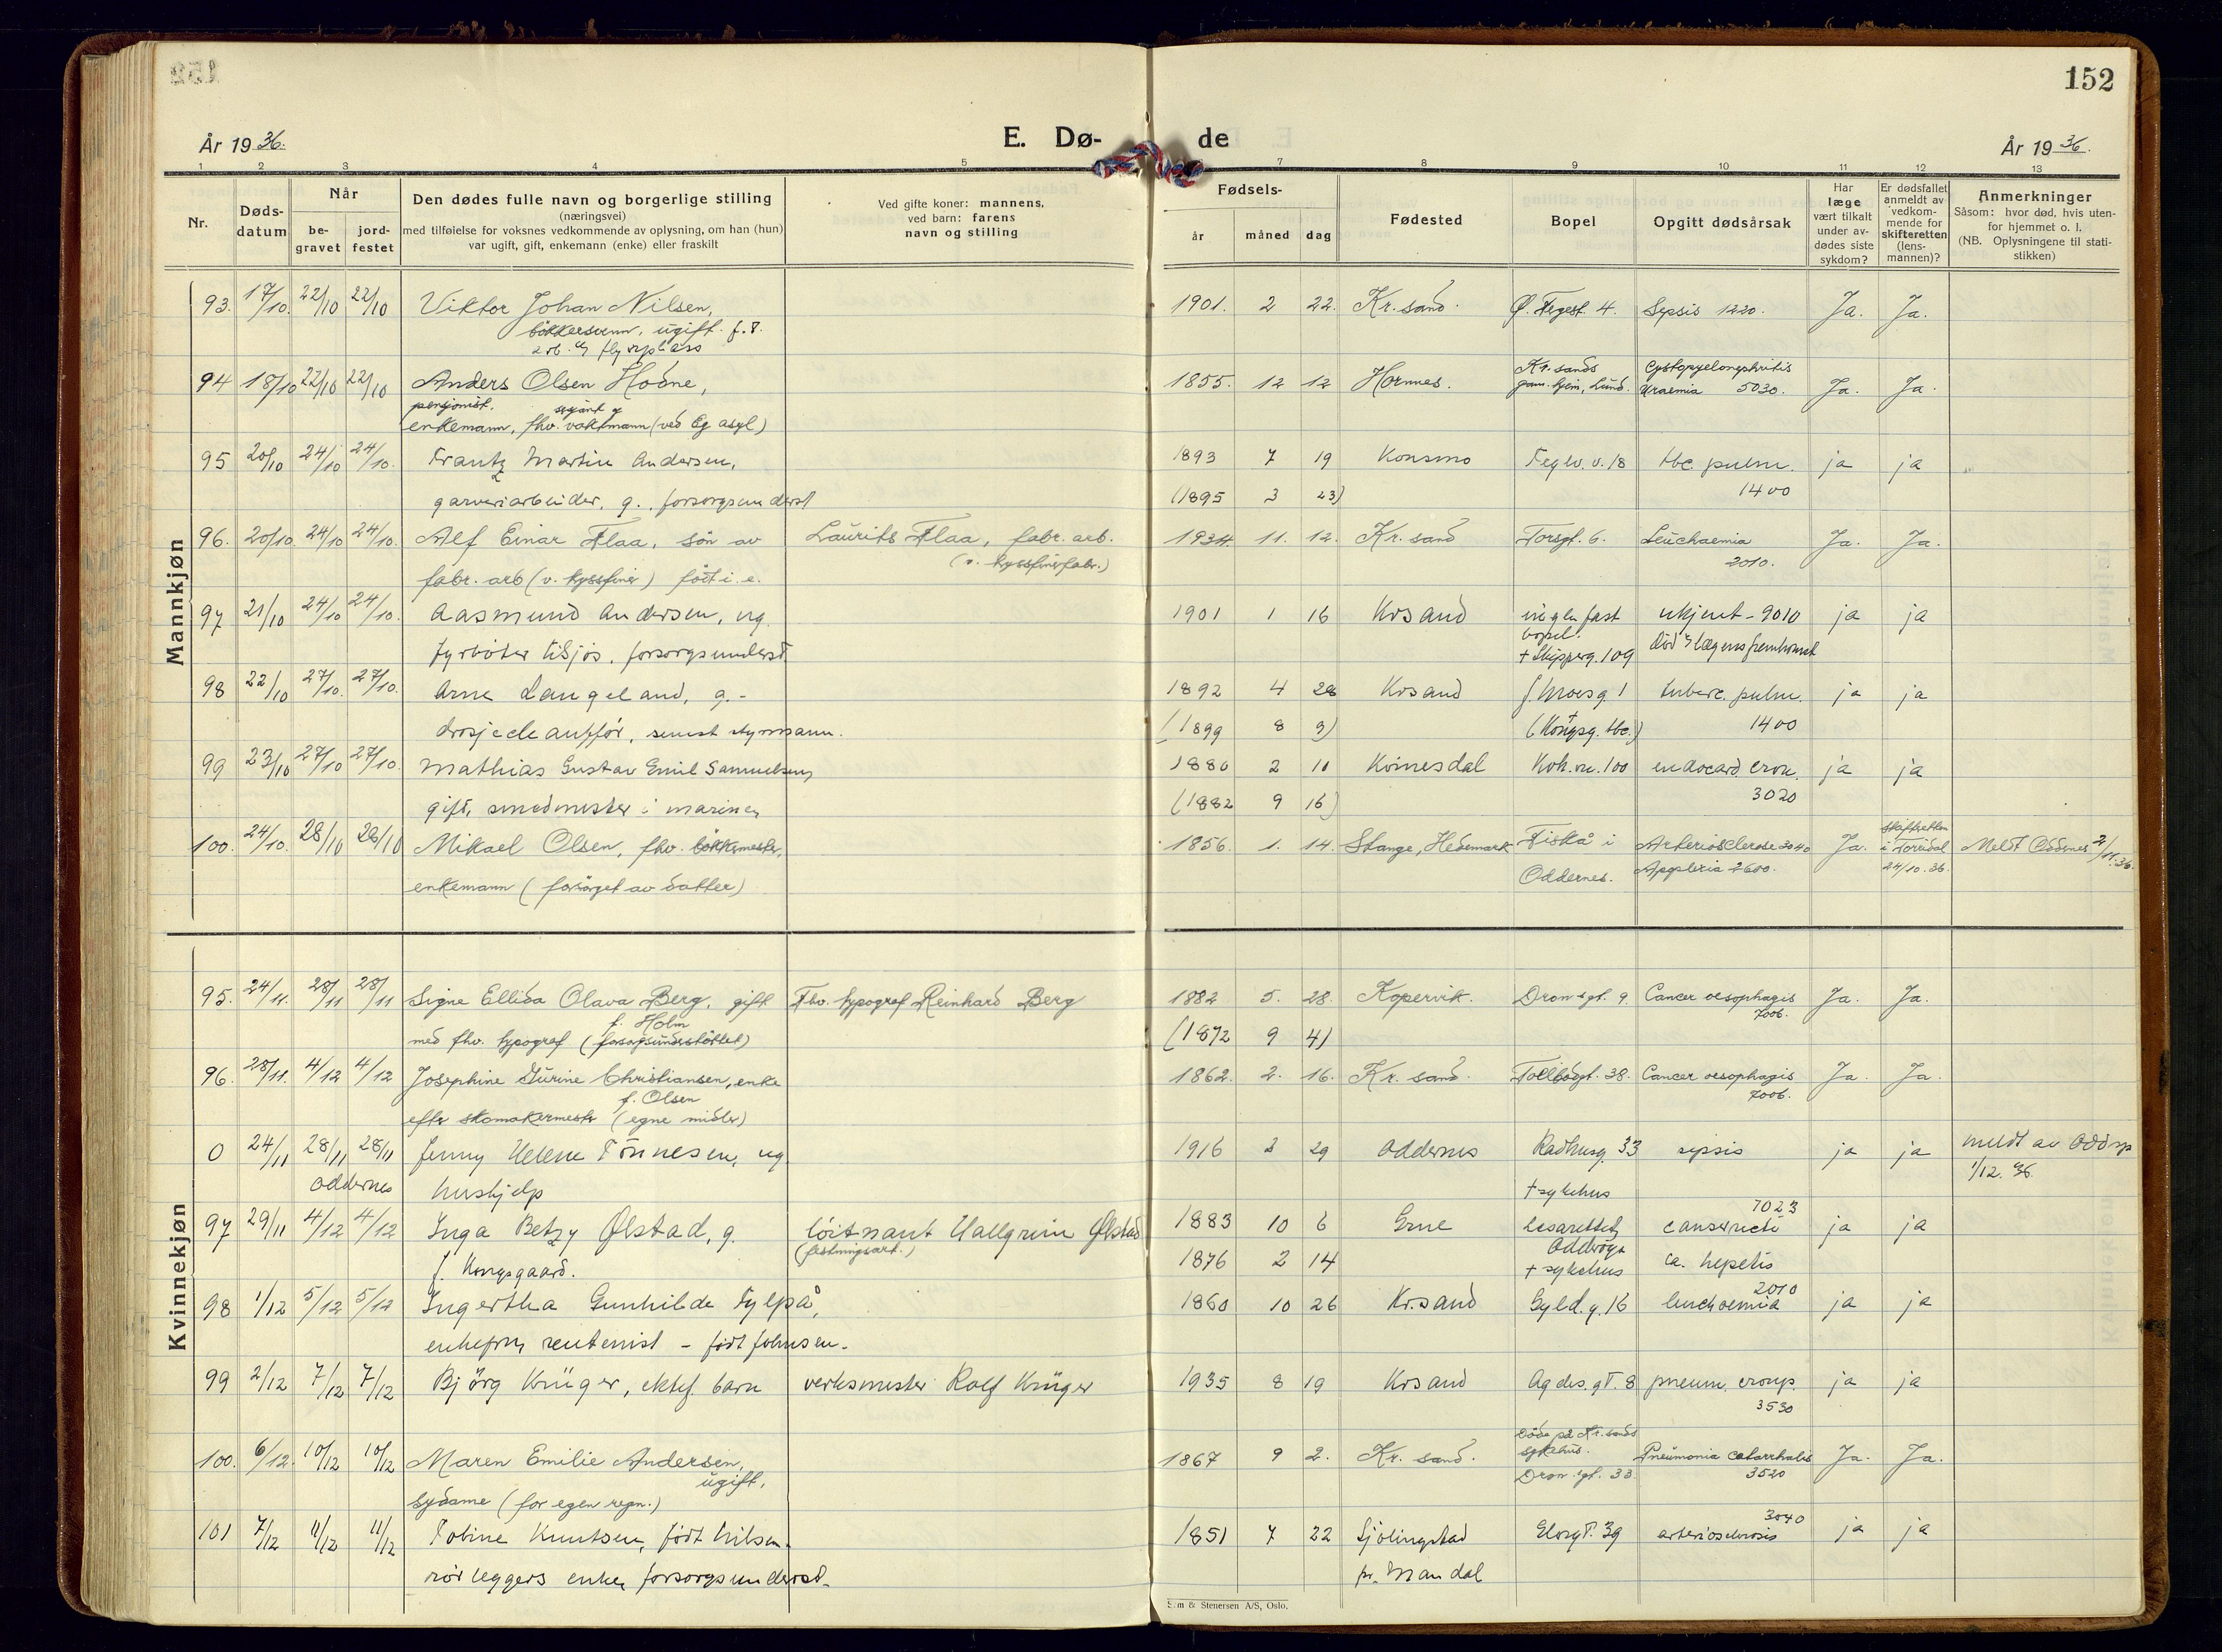 152
År 1936.
E. Dø-
de
År 1936.
1 2 3 4 5 7 8 9 10 11 12 13
Nr.
Døds-
datum
Når
be-
gravet
jord-
festet
Den dødes fulle navn og borgerlige stilling
(næringsvei)
med tilføielse for voksnes vedkommende av oplysning, om han (hun)
var ugift, gift, enkemann (enke) eller fraskilt
Ved gifte koner: mannens,
ved barn: farens
navn og stilling
Fødsels-
år måned dag
Fødested
Bopel
Opgitt dødsårsak
Har
læge
vært tilkalt
under av-
dødes siste
sykdom?
Er dødsfallet
anmeldt av
vedkom-
mende for
skifteretten
(lens-
mannen)?
Anmerkninger
Såsom: hvor død, hvis uten-
for hjemmet o. l.
(NB. Oplysningene til stati-
stikken)
Mannkjøn
93. 17/10. 22/10 22/10 Viktor Johan Nilsen, 1901. 2 22. Kr.sand. Ø. Tegest. 4. Sepsis 1220. Ja. Ja.
bökkersvenn, ugift. f.t.
arb. flyveplass
94 18/10 22/10 22/10 Anders Olsen Hodne, 1855. 12 12 Hornes. Kr.sands gam. hjem, Lund. Cystopyelonephritis
Uraemia 5030. Ja. Ja.
pensjonist, sersjant og
enkemann, fhv. vaktmann (ved Eg asyl)
95 20/10 24/10 24/10. Frantz Martin Andersen, 1893 7 19 Konsmo Teglv. v. 18 tbc. pulm. ja ja
garveriarbeider, g., forsorgsunderst (1895 3 23) 1400
96. 20/10. 24/10 24/10. Alf Einar Flaa, sön av Laurits Flaa, fabr. arb. 1934. 11. 12. Kr. sand Torsgt. 6. Leuchaemia Ja. Ja.
fabr. arb (v. kryssfiner) födt i. e. (v. kryssfinerfabr.) 2010.
97 21/10 24/10 24/10. Aasmund Andersen, ug. 1901 1 16 Krsand ingen fast ukjent - 9010 ja ja
bopel.
fyrböter tilsjös, forsorgsunderst. + Skipperg. 109 död v/ lægens fremkomst
98 22/10 27/10. 27/10. Arne Langeland, g. - 1892 4 28 Krsand J. Moesg. 1 tuberc. pulm. ja ja
drosjechauffør, senest styrmann. (1899 8 3) (Kongsg. tbc.) 1400
99 23/10 27/10 27/10. Mathias Gustav Emil Samuelsen, 1880 2 10 Kvinesdal Kok.vn. 100 endocard. cron. ja ja
gift, smedmester i marinen (1882 9 16) 3020
100. 24/10. 28/10 28/10 Mikael Olsen, fhv. bökkermester, 1856. 1. 14. Stange, Hedemark Fiskå i Arteriosclerose 3040 Ja. skifteretten
i Torridal
24/10.36. Meldt Oddernes 2/11.36.
enkemann (forsörget av datter) Oddernes. Apoplexia 2600.
Kvinnekjøn
95. 24/11. 28/11 28/11 Signe Ellida Olava Berg, gift Fhv. typograf Reinhard Berg 1882 5. 28. Kopervik. Dron.sgt. 9. Cancer oesophagis Ja. Ja.
f. Holm 7006.
med fhv. typograf (forsorgsunderstöttet) (1872 9 4)
96. 28/11. 4/12 4/12 Josephine Gurine Christiansen, enke 1862. 2. 16. Kr. sand. Tollbodgt. 38. Cancer oesophagis Ja. Ja.
f. Olsen 7006.
efter skomakermester (egne midler)
0 24/11 28/11 28/11 Jenny Helene Tönnesen, ug. 1916 2 29 Oddernes Rådhusg. 33 sepsis ja ja meldt av Oddnes
Oddernes hushjelp + sykehus 1/12. 36.
97 29/11 4/12 4/12 Inga Betzy Ølstad, g. löitnant Hallgrim Ølstad 1883 10 6 Grue lasarettet, 7023
cancer recti ja ja
(festningsart.) Odderöya
f. Kongsgaard. 1876 2 14 + sykehus ca. hepatis
98 1/12 5/12 5/12 Ingertha Gunhilde Fylpå, 1860 10 26 Kr.sand Gyld. g. 16 2010
leuchaemia ja ja
enkefru, rentenist - född Johnsen.
99 2/12 7/12 7/12 Bjørg Krüger, ektef. barn verksmester Rolf Krüger 1935 8 19 Krsand Agdes.gt. 8 pneum. croup. ja ja
3530
100. 6/12. 10/12 10/12 Maren Emilie Andersen, 1867 9 2. Kr. sand. Döde på Kr.sands
sykehus.
Dron.sgt. 33 Pneumonia catarrhalis Ja. Ja.
ugift, 3520
sydame (for egen regn.)
101 7/12 11/12 11/12 Tobine Knutsen, födt Nilsen. 1851 7 22 Sjölingstad Elvegt. 39 3040
arteriosclerosis ja ja
rörleggers enke, forsorgsunderst. pr. Mandal
S.m & Stenersen A/S, Oslo.